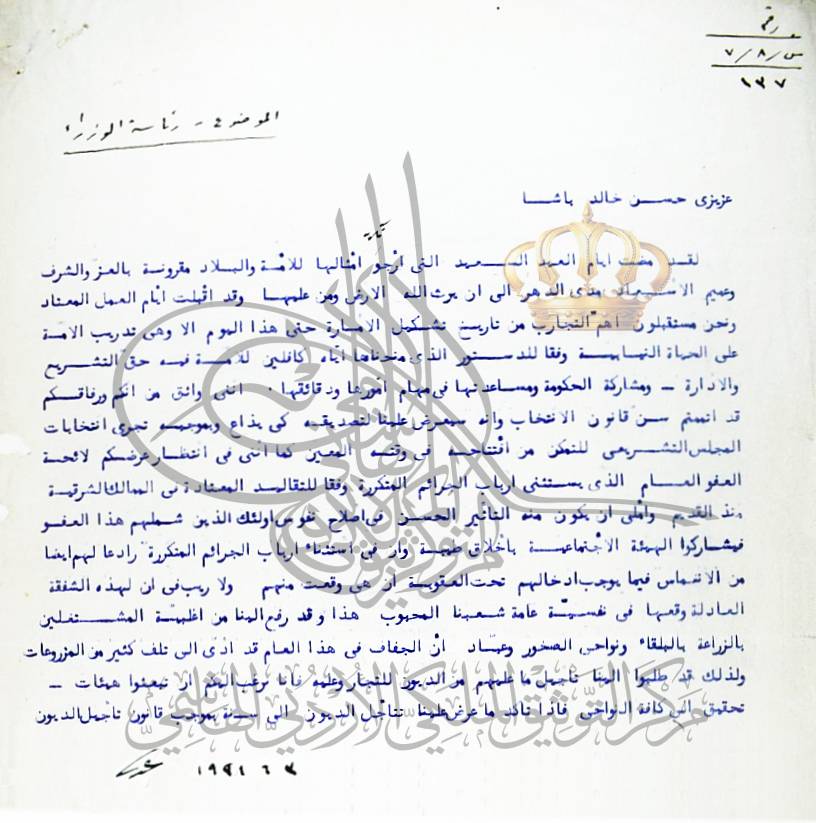 ورقة
س/٨/٧
١٣٧
الموضوع - رئاسة الوزراء
عزيزى حسن خالد باشا
لقد مضت ايام العيد السعيد التى أرجو امثالها للامة والبلاد مقرونة بالعز والشرف
وعميم الاسعاد مدى الدهر الى ان يرث الله الارض ومن عليها وقد اقبلت ايام العمل المعتاد
ونحن مستقبلون اهم التجارب من تاريخ تشكيل الامارة حتى هذا اليوم الا وهى تدريب الامة
على الحياة النيابية وفقا للدستور الذى منحناها اياه كافلين للامة فيه حق التشريع
والادارة - ومشاركة الحكومة ومساعدتها فى مهام امورها ودقائقها . اننى واثق من انكم ورفاقكم
قد اتممتم سن قانون الانتخاب وانه سيعرض علينا لتصديقه كى يذاع وبموجبه تجرى انتخابات
المجلس التشريعى للتمكن من افتتاحه فى وقته المعين كما اننى فى انتظار عرضكم لائحة
العفو العام الذى يستثنى ارباب الجرائم المتكررة وفقا للتقاليد المعتادة فى الممالك الشرقية
منذ القديم وأملى ان يكون منه التأثير الحسن فى اصلاح نفوس اولئك الذين شملهم هذا العفو
فيشاركوا الهيئة الاجتماعية باخلاق طيبة وان فى استثناء ارباب الجرائم المتكررة رادعا لهم ايضا
من الانغماس فيما يوجب ادخالهم تحت العقوبة ان هى وقعت منهم ولا ريب فى ان لهذه الشفقة
العادلة وقعها فى نفسية عامة شعبنا المحبوب هذا وقد رفع الينا من اغلبية المشتغلين
بالزراعة بالبلقاء ونواحى الصخور وعباد ان الجفاف فى هذا العام قد ادى الى تلف كثير من المزروعات
ولذلك قد طلبوا الينا تأجيل ما عليهم من الديون للتجار وعليه فانا نرغب اليكم ان تبعثوا هيئات -
تحقيق الى كافة النواحى فاذا تأكد ما عرض علينا تتأجل الديون الى سنة بموجب قانون تاجيل الديون
٣ ٦ ١٩٢١
مركز التوثيق الملكي الأردني الهاشمي